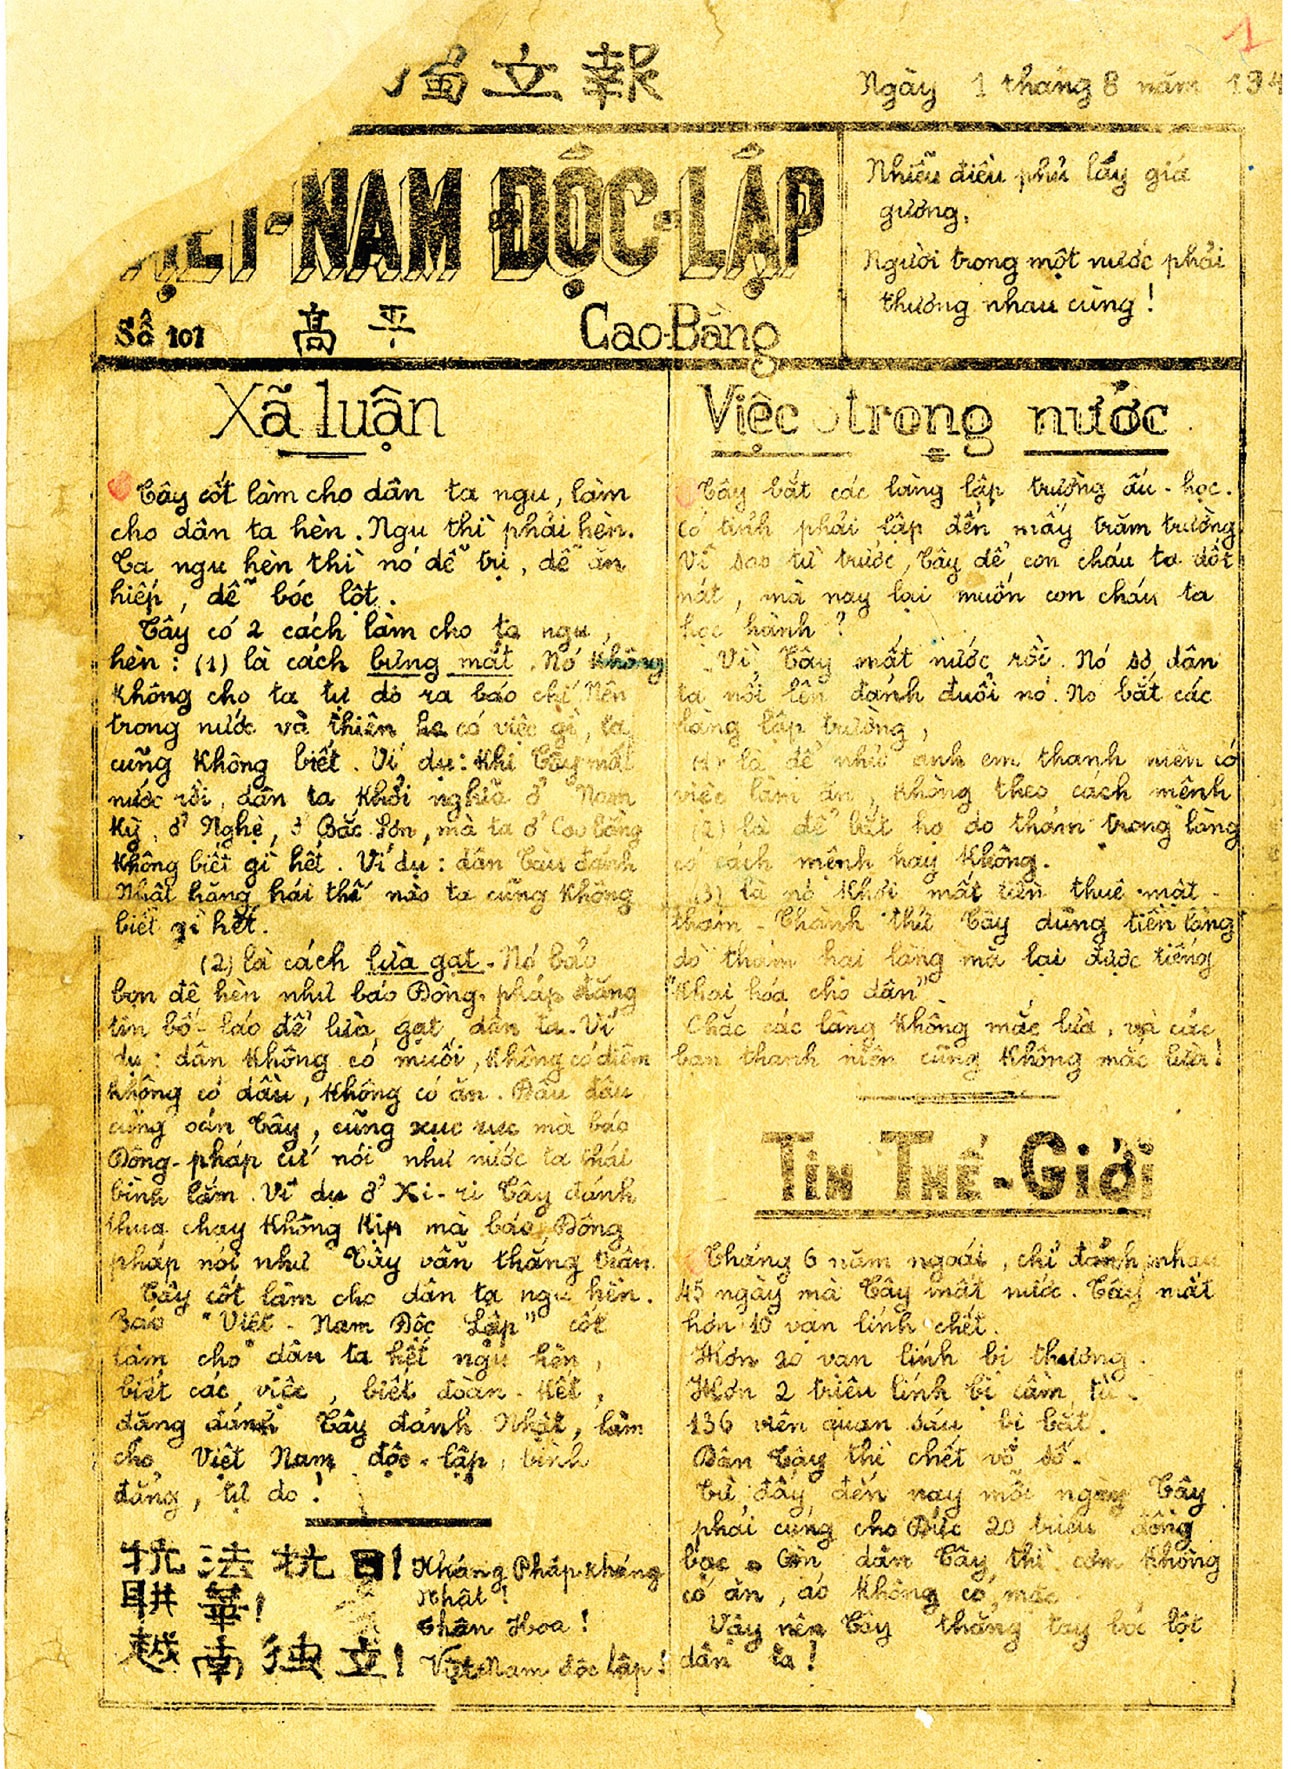 獨立報
Ngày 1 tháng 8 năm 194
VIỆT-NAM ĐỘC-LẬP
Nhiễu điều phủ lấy giá
gương,
Người trong một nước phải
thương nhau cùng!
Số 101
高平
Cao-Bằng
Xã luận
Tây cốt làm cho dân ta ngu, làm
cho dân ta hèn. Ngu thì phải hèn.
Ta ngu hèn thì nó dễ trị, dễ ăn
hiếp, dễ bóc lột.
Tây có 2 cách làm cho ta ngu,
hèn: (1) là cách bưng mắt. Nó không
không cho ta tự do ra báo chí. Nên
trong nước và thiên hạ có việc gì, ta
cũng không biết. Ví dụ: khi Tây mất
nước rồi, dân ta khởi nghĩa ở Nam
Kỳ, ở Nghệ, ở Bắc Sơn, mà ta ở Cao bằng
không biết gì hết. Ví dụ: dân Tàu đánh
Nhật hăng hái thế nào ta cũng không
biết gì hết.
(2) là cách lừa gạt. Nó bảo
bọn đê hèn như báo Đông-pháp đăng
tin bố láo để lừa gạt dân ta. Ví
dụ: dân không có muối, không có diêm
không có dầu, không có ăn. Đâu đâu
cũng oán Tây, cũng xục xục mà báo
Đông-pháp cứ nói như nước ta thái
bình lắm. Ví dụ ở Xi-ri Tây đánh
thua chạy không kịp mà báo Đông
pháp nói như Tây vẫn thắng trận.
Tây cốt làm cho dân ta ngu hèn.
Báo "Việt-Nam Độc Lập" cốt
làm cho dân ta hết ngu hèn,
biết các việc, biết đoàn-kết,
đặng đánh Tây đánh Nhật, làm
cho Việt Nam độc-lập, bình
đẳng, tự do!
抗法抗日! Kháng Pháp kháng
Nhật!
聯華! Thân Hoa!
越南独立! Việt Nam độc lập!
Việc trong nước
Tây bắt các làng lập trường ấu-học.
Có tỉnh phải lập đến mấy trăm trường.
Vì sao từ trước, Tây để con cháu ta dốt
nát, mà nay lại muốn con cháu ta
học hành?
Vì Tây mất nước rồi. Nó sợ dân
ta nổi lên đánh đuổi nó. Nó bắt các
làng lập trường,
(1) là để như anh em thanh niên có
việc làm ăn, không theo cách mệnh
(2) là để bắt họ do thám trong làng
có cách mệnh hay không.
(3) là nó khỏi mất tiền thuê mật-
thám. Thành thử Tây dùng tiền làng
dò thám hại làng mà lại được tiếng
"khai hóa cho dân"
Chắc các làng không mắc lừa, và các
bạn thanh niên cũng không mắc lừa!
TIN THẾ-GIỚI
Tháng 6 năm ngoái, chỉ đánh nhau
45 ngày mà Tây mất nước. Tây mất
hơn 10 vạn lính chết.
Hơn 20 vạn lính bị thương.
Hơn 2 triệu lính bị cầm tù.
136 viên quan sáu bị bắt.
Dân Tây thì chết vô số.
Từ đấy đến nay mỗi ngày Tây
phải cung cho Đức 20 triệu đồng
bạc. Còn dân Tây thì cơm không
có ăn, áo không có mặc
Vậy nên Tây thẳng tay bóc lột
dân ta!